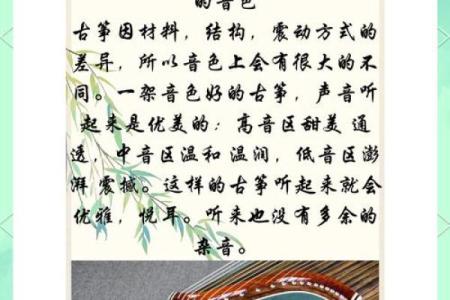 的音色
古筝因材料，结构，震动方式的
差异，所以音色上会有很大的不
同。一架音色好的古筝，声音听
起来是优美的：高音区甜美 通
透，中音区温和 温润，低音区澎
湃 震撼。这样的古筝听起来就会
优雅，悦耳。听来也没有多余的
杂音。